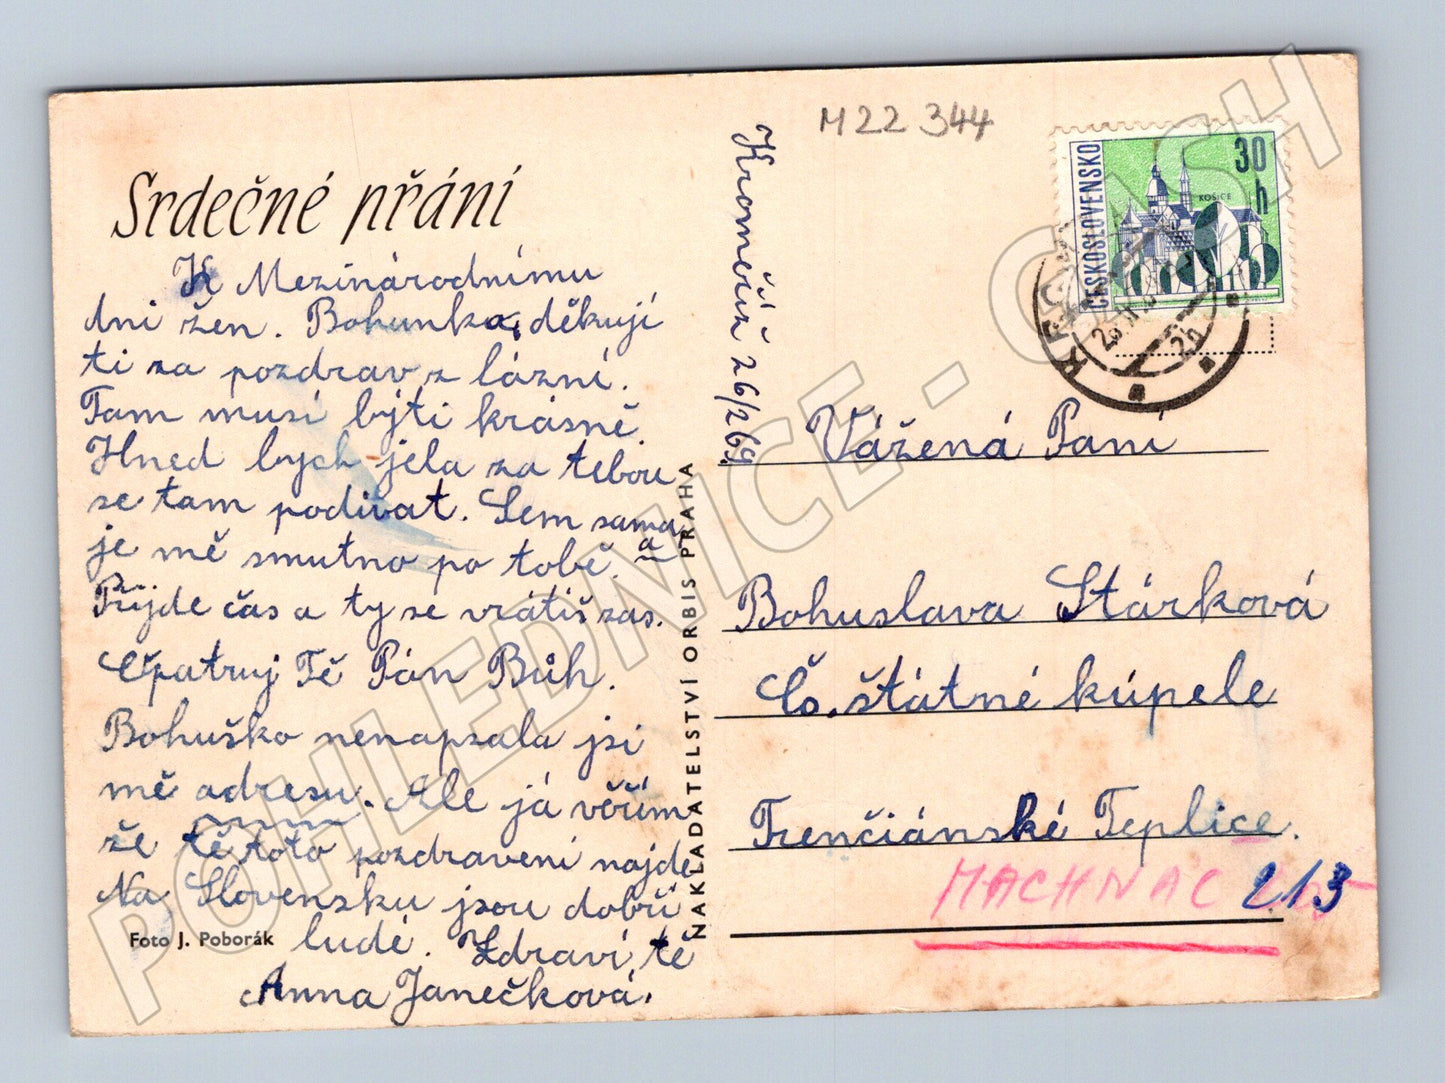 M22 344
Srdečné přání
K Mezinárodnímu
dni žen. Bohunko, děkuji
ti za pozdrav z lázní.
Tam musí býti krásně.
Hned bych jela za tebou
se tam podívat. Sem sama
je mě smutno po tobě. a
Přijde čas a ty se vrátíš zas.
Opatruj Tě Pán Bůh.
Bohuško nenapsala jsi
mě adresu. Ale já věřím
že tě toto pozdravení najde
Na Slovensku jsou dobří
ludé. Zdraví tě
Anna Janečková.
Foto J. Poborák
NAKLADATELSTVÍ ORBIS PRAHA
Kroměříž 26/2 69
ČESKOSLOVENSKO
30 h
KOŠICE
Vážená Paní
Bohuslava Stárková
Čs. štátné kúpele
Trenčiánské Teplice.
MACHNAC 213
POHLEDNICE - CASH